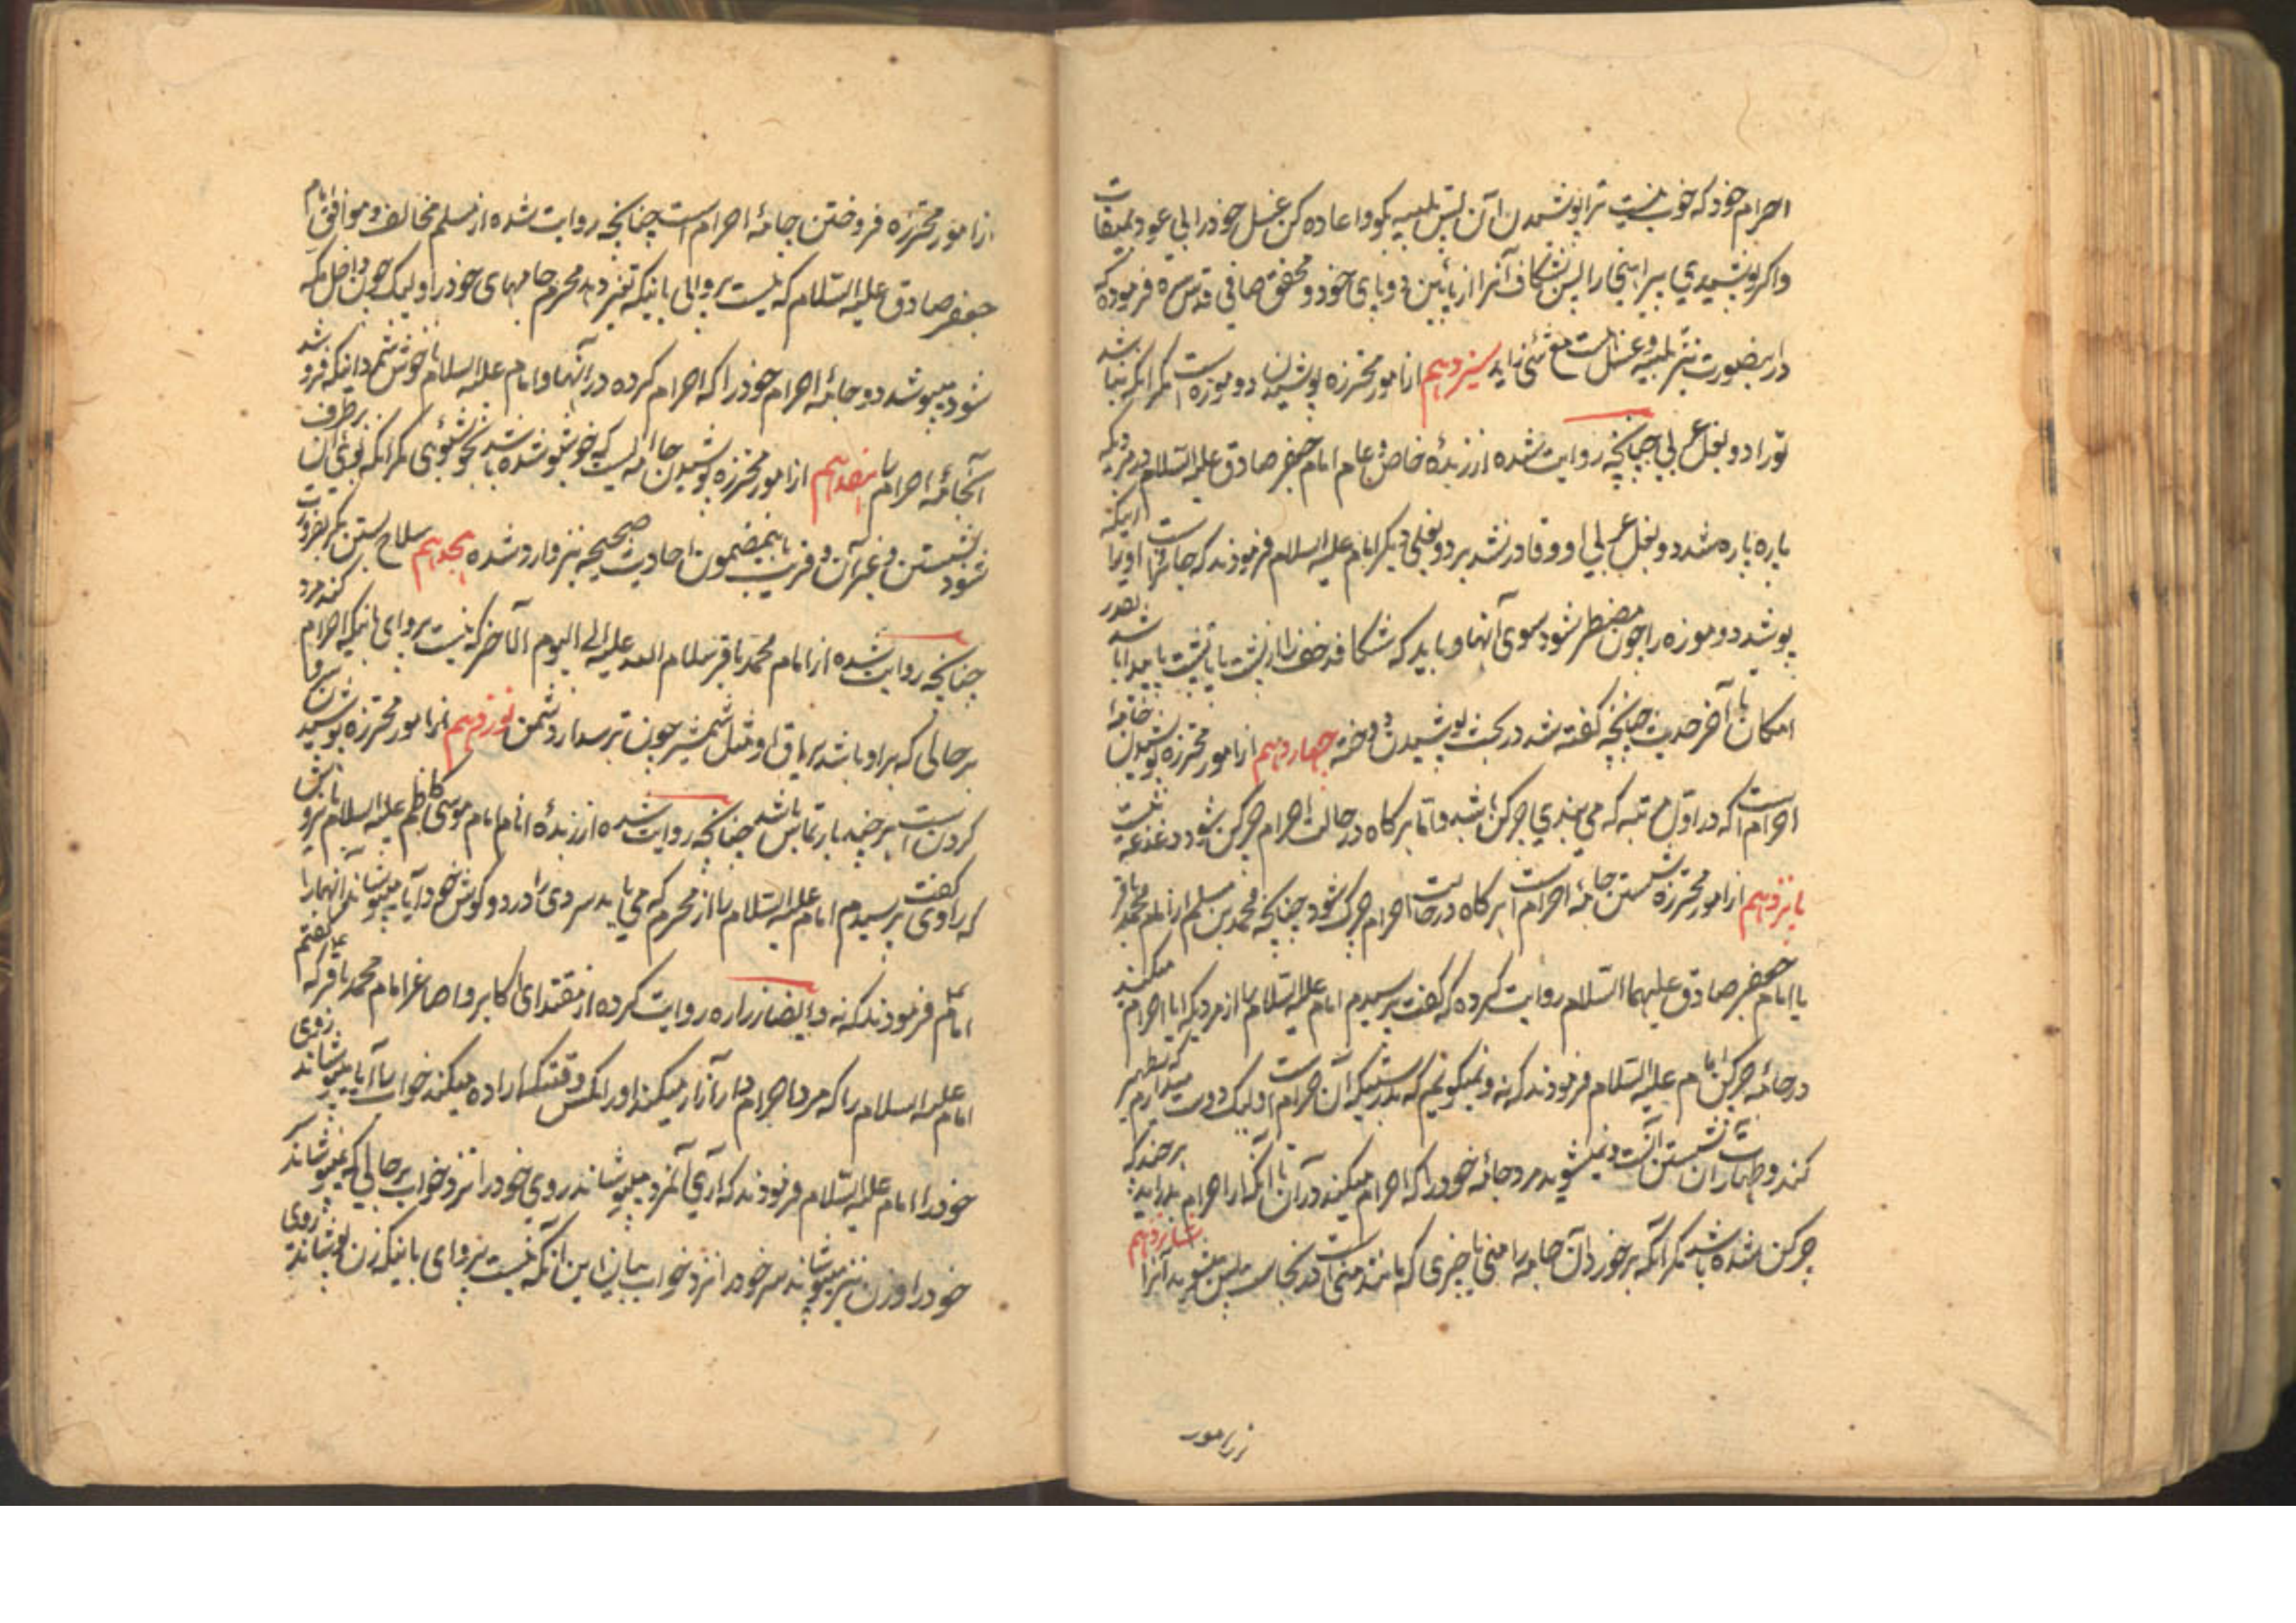 احرام خود که خوب نیست ترا پوشیدن آن پس تلبیه بگو و اعاده کن غسل خود را یعنی عود بمیقات
و اگر پوشیدی پیراهنی را پس بشکاف آنرا از پائین دو پای خود و محقق صافی قدس سره فرموده که
در اینصورت نیز تلبیه و غسل سیزدهم از امور محترزه پوشیدن دو موزه است مگر آنکه نباشد
تو را دو نعل عربی چنانچه روایت شده از زبدهٔ خاص و عام امام جعفر صادق علیه السلام در مردیکه
پاره پاره شد دو نعل عربی او و قادر نشد بر دو نعلی دیگر امام علیه السلام فرمودند که جائز است او را اینکه
پوشد دو موزه را چون مضطر شود سوی آنها و باید که شکافد خف را از پشت پا
امکان تا آخر حدیث چنانچه گفته شد در بحث پوشیدن دوخته چهاردهم از امور محترزه پوشیدن جامهٔ
احرام است که در اول مرتبه که می بندی چرکن باشد و اما هرگاه در حالت احرام چرکن شود دغدغه نیست
پانزدهم از امور محترزه شستن جامهٔ احرام است هرگاه در حالت احرام چرک شود چنانچه محمد بن مسلم از امام محمد باقر
یا امام جعفر صادق علیهما السلام روایت کرده که گفت پرسیدم امام علیه السلام را از مردیکه ایا احرام میکند
در جامهٔ چرکن امام علیه السلام فرمودند که نه و نمیگویم که بدرستیکه آن حرام است و لیک دوست میدارم که تطهیر
کند و طهارت آن شستن آنست و نمیشوید مرد جامهٔ خود را که احرام میکند در آن تا آنکه از احرام بدر آید هر چند که
چرکن شده باشد مگر آنکه برخورد آن جامه را منی یا چیزی که مانند منی است در نجاست پس بشوید آنرا شانزدهم
از امور
از امور محترزه فروختن جامهٔ احرام است چنانچه روایت شده از مسلم مخالف و موافق امام
جعفر صادق علیه السلام که نیست پروایی باینکه تغییر دهد محرم جامهای خود را و لیک چون داخل مکه
شود میپوشد دو جامهٔ احرام خود را که احرام کرده در آنها و امام علیه السلام ناخوش شمرد اینکه فروشد
آنجامهٔ احرام را هفدهم از امور محترزه پوشیدن جامه ایست که خوشبو شده باشد بخوشبوی مگر آنکه بوی آن برطرف
شود بشستن و غیر آن و قریب باینمضمون احادیث صحیحه نیز وارد شده هجدهم سلاح بستن مگر بضرورت
چنانچه روایت شده از امام محمد باقر سلام الله علیه الی الیوم الآخر که نیست پروای باینکه احرام کند مرد
بر حالی که بر او باشد یراق او مثل شمشیر چون ترسد از دشمن نوزدهم از امور محترزه پوشیدن سر و
کردن است هر چند بارتماس باشد چنانچه روایت شده از زبدهٔ انام امام موسی کاظم علیه السلام
که راوی گفت پرسیدم امام علیه السلام را از محرم که می یابد سردی را در دو گوش خود آیا میپوشاند آنها را
امام فرمودند که نه و ایضا زراره روایت کرده از مقتدای اکابر و اصاغر امام محمد باقر که گفتم
امام علیه السلام را که مرد با احرام را آزار میکند او را مکس وقتیکه اراده میکند خواب را آیا میپوشاند روی
خود را امام علیه السلام فرمودند که آری آنمرد میپوشاند روی خود را نزد خواب بر حالی که
خود را و زن نیز میپوشاند سر خود را نزد خواب بیان این آنکه نیست پروای باینکه زن پوشاند روی